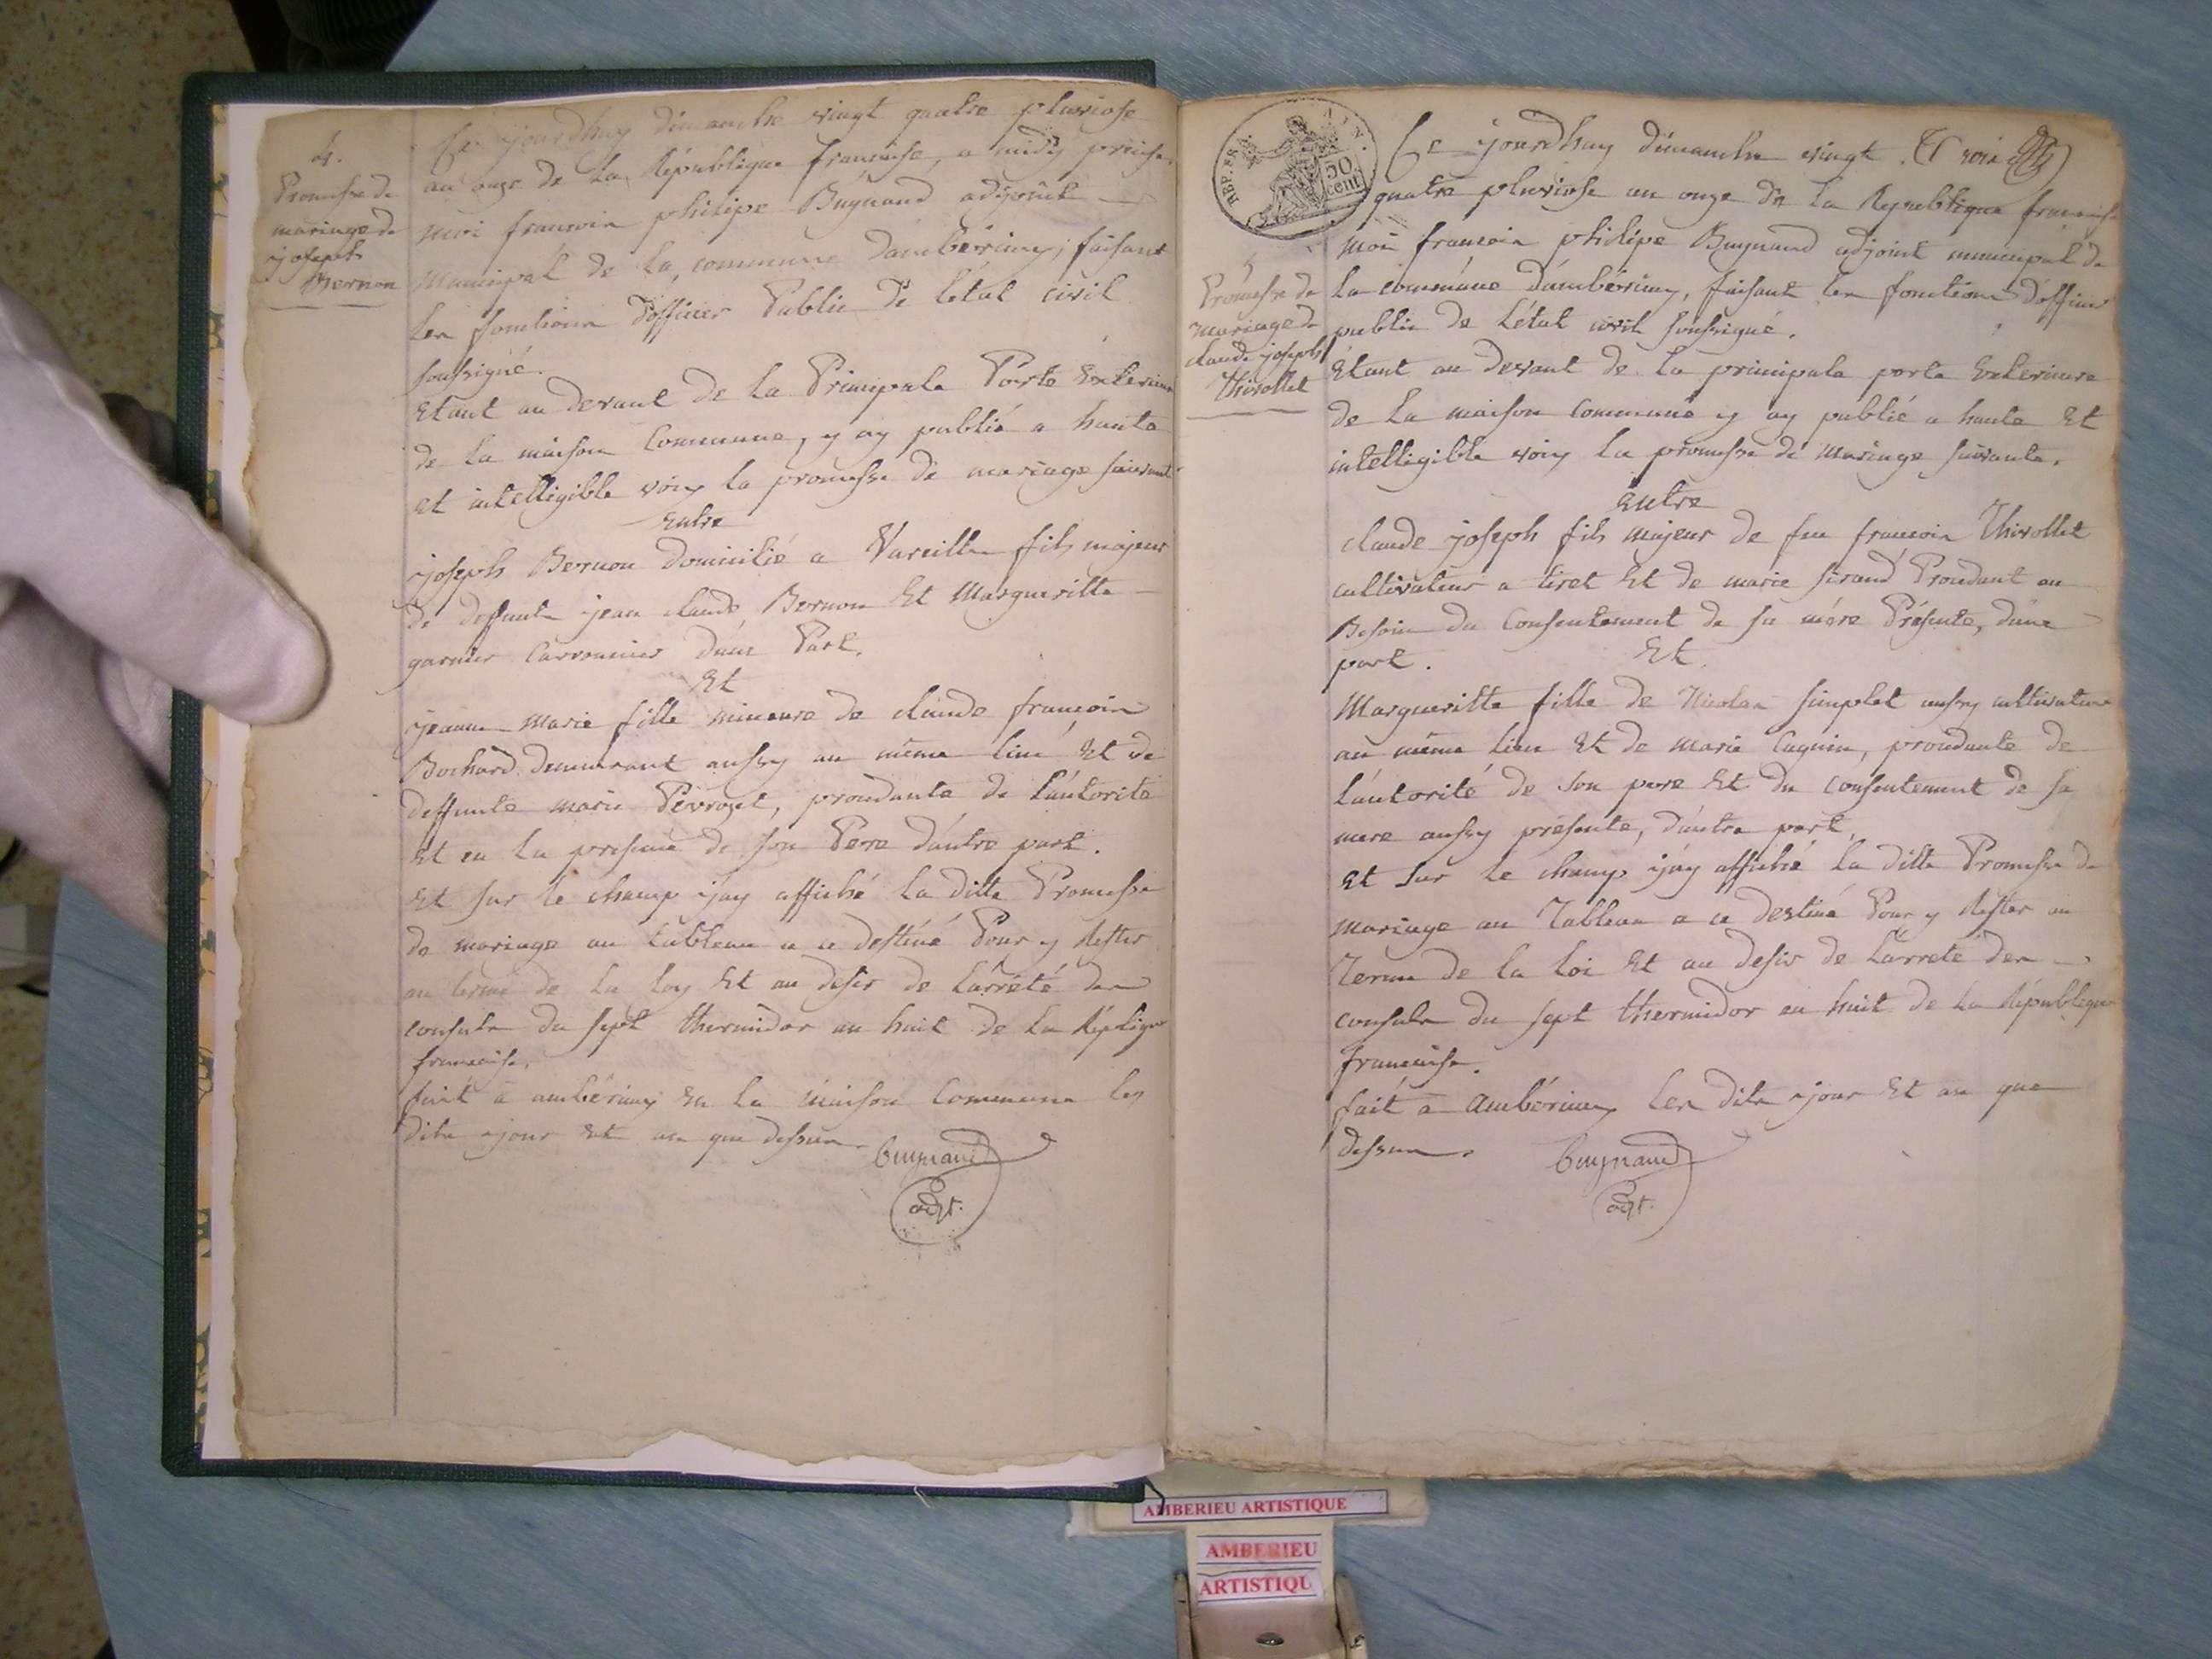 4.
Promesse de
mariage de
joseph
Bernon
Ce jourdhuy dimanche vingt quatre pluviose
an onze de La République francaise, a midy précise
moi francois philipe Bugnand adjoint
Municipal de La commune d'ambérieux, faisant
Les fonctions d'officier Public de l'état civil
soussigné.
Etant au devant de La Principale Porte Exterieure
de La maison Commune, y ay publié a haute
et intelligible voix la promesse de mariage suivante
Entre
joseph Bernon domicilié a Vareilles fils majeur
de deffunts jean claude Bernon Et Margueritte
garnier Carronnier d'une Part.
Et
jeanne Marie fille mineure de claude francois
Bochard demeurant aussy au même lieu Et de
deffunte marie Pevrozet, procédante de L'autorité
Et en La presence de son Pere d'autre part.
Et sur le champ j'ay affiché La ditte Promesse
de mariage au tableau a ce destiné Pour y Rester
au terme de La Loy Et au desir de L'arrété des
consuls du sept thermidor an huit de La Répblique
francaise.
fait à ambérieux En La maison Commune les
dits jour Et an que dessus. Bugnand
adjt.
REP. FRA.
50
cent.
5
Promesse de
mariage de
claude joseph
Thivollet
Ce jourdhuy dimanche vingt
quatre pluviose an onze de La Republique francaise
Moi francois philipe Bugnand adjoint municipal de
La commune d'ambérieux, faisant les fonctions d'officier
public de L'état civil soussigné.
Étant au devant de La principale porte Exterieure
de La maison Commune y ay publié a haute Et
intelligible voix la promesse de Mariage suivante.
Entre
claude joseph fils majeur de feu francois Thivollet
cultivateur a tiret Et de marie sirand Procédant au
Besoin du Consentement de sa mère Présente, d'une
part. Et
Margueritte fille de Nicolas simplet aussy cultivateur
au même lieu Et de marie Cagnin, procédante de
L'autorité de son pere Et du consentement de sa
mere aussy présente, d'autre part.
Et sur le champ j'ay affiché la ditte Promesse de
mariage au Tableau a ce destiné Pour y Rester au
Terme de la Loi Et au desir de L'arrété des
consuls du sept thermidor an huit de La République
francaise.
fait à ambérieux Les dits jour Et an que
dessus. Bugnand
adjt.
AMBERIEU ARTISTIQUE
AMBERIEU
ARTISTIQU